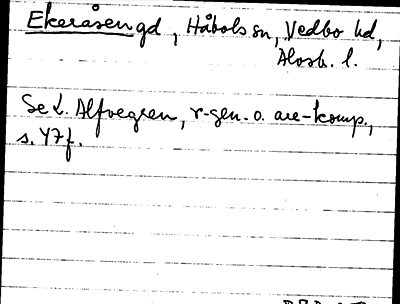 Ekeråsen gd, Håbols sn, Vedbo hd,
Älvsb. l.
Se L. Alfvegren, r-gen. o. are-komp.,
s. 47f.